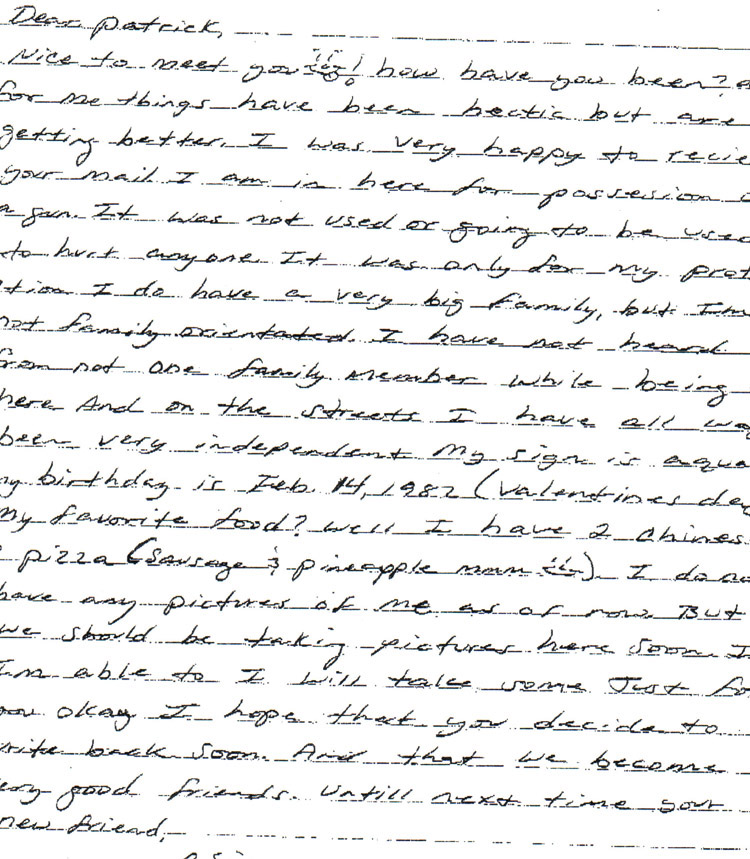 Dear Patrick,
Nice to meet you! how have you been? a
for me things have been hectic but are
getting better. I was very happy to recie
your mail I am in here for possession o
a gun. It was not used or going to be used
to hurt anyone. It was only for my prot
tion I do have a very big family, but I'm
not family orientated. I have not heard
from not one family member while being
here And on the streets I have all wa
been very independent My sign is aqua
my birthday is Feb. 14, 1982 (Valentines day
My favorite food? Well I have 2 Chines
& pizza (Sausage & pineapple mmm). I do no
have any pictures of me as of now. But
we should be taking pictures here soon. I
I'm able to I will take some Just fo
you okay I hope that you decide to
write back soon. And that we become
very good friends. Untill next time your
new friend,